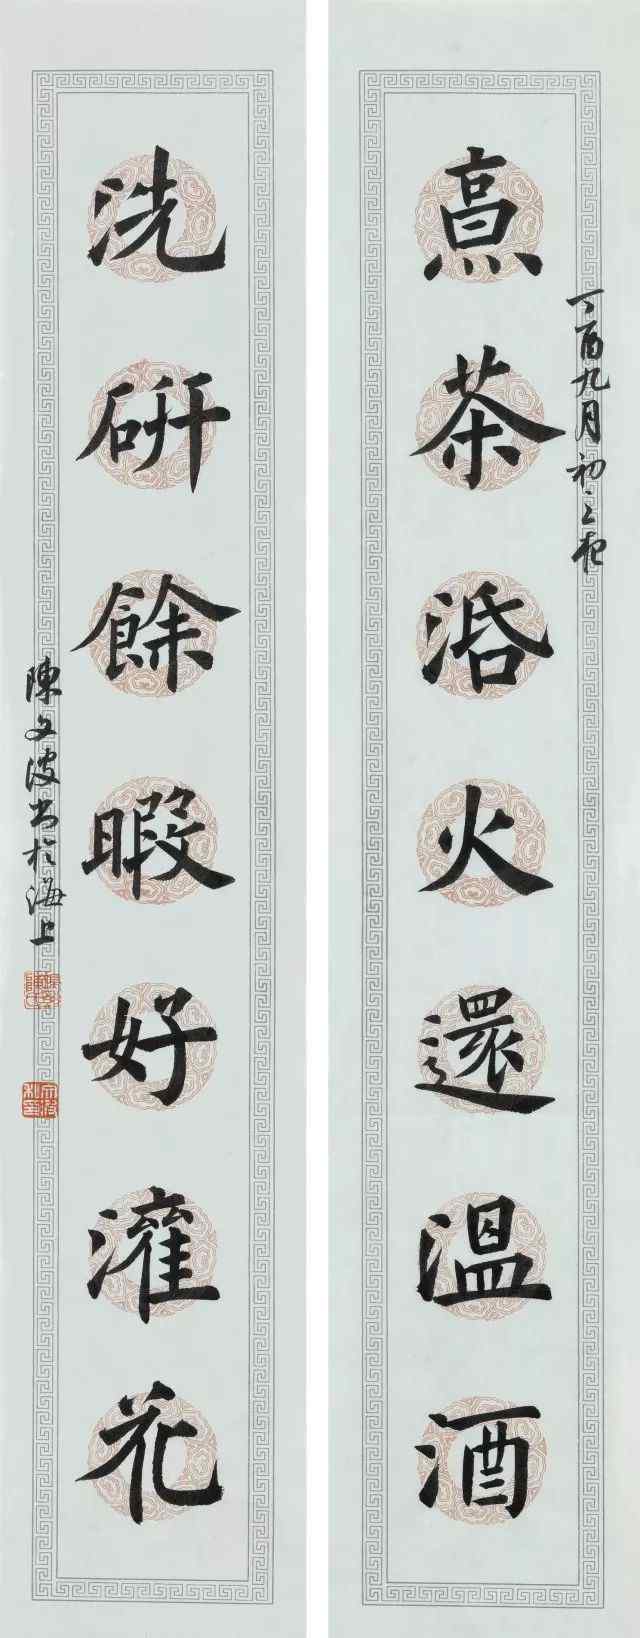 丁酉九月初三夜
烹茶活火還溫酒
洗研餘暇好灌花
陳文波書於海上